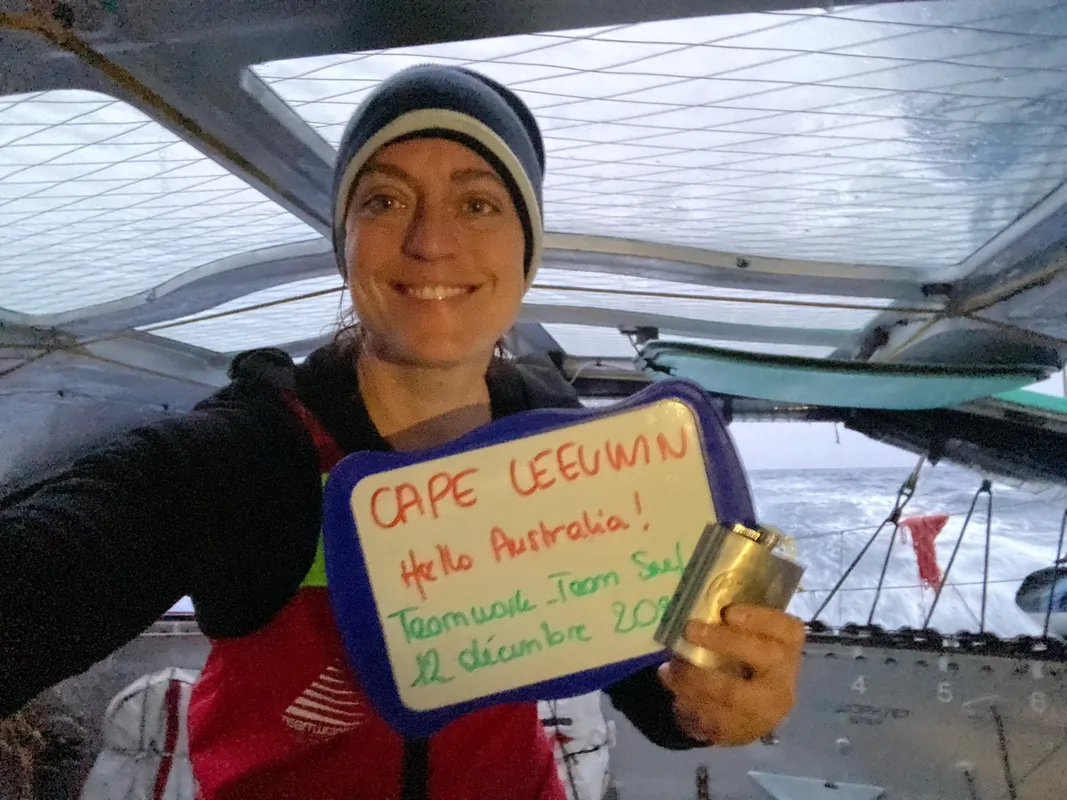 CAPE LEEUWIN
Hello Australia!
Teamwork - Team Snef
12 décembre 202
TEAMWORK
4 5 6